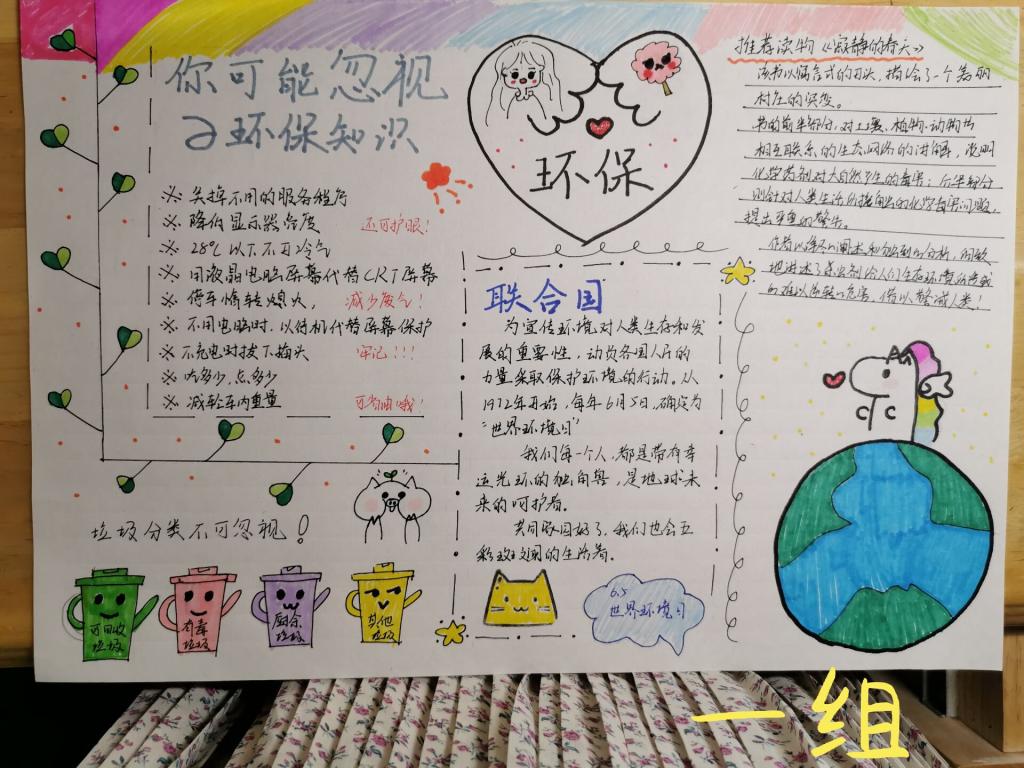 你可能忽视
之环保知识
※ 关掉不用的服务程序
※ 降低显示器亮度 还可护眼!
※ 28℃以下不可冷气
※ 用液晶电脑屏幕代替CRT屏幕
※ 停车情转熄火, 减少废气!
※ 不用电脑时,以待机代替屏幕保护
※ 不充电时拔下插头 牢记!!!
※ 吃多少,点多少
※ 减轻车内重量 可省油哦!
垃圾分类不可忽视!
可回收
垃圾
有毒
垃圾
厨余
垃圾
其他
垃圾
环保
联合国
为宣传环境对人类生存和发
展的重要性,动员各国人民的
力量采取保护环境的行动。从
1972年开始,每年6月5日,确定为
“世界环境日”
我们每一个人,都是带有幸
运光环的独角兽,是地球未
来的呵护者。
共同家园好了,我们也会五
彩斑斓的生活着。
6.5
世界环境日
推荐读物《寂静的春天》
该书以寓言式的开头,描绘了一个美丽
村庄的突变。
书的前半部分,对土壤、植物、动物等
相互联系的生态网络的讲解,说明
化学药剂对大自然产生的毒害;后半部分
则针对人类生活所接触的化学毒害问题,
提出严重的警告。
的难以逆转的危害,借以警诫人类!
一组